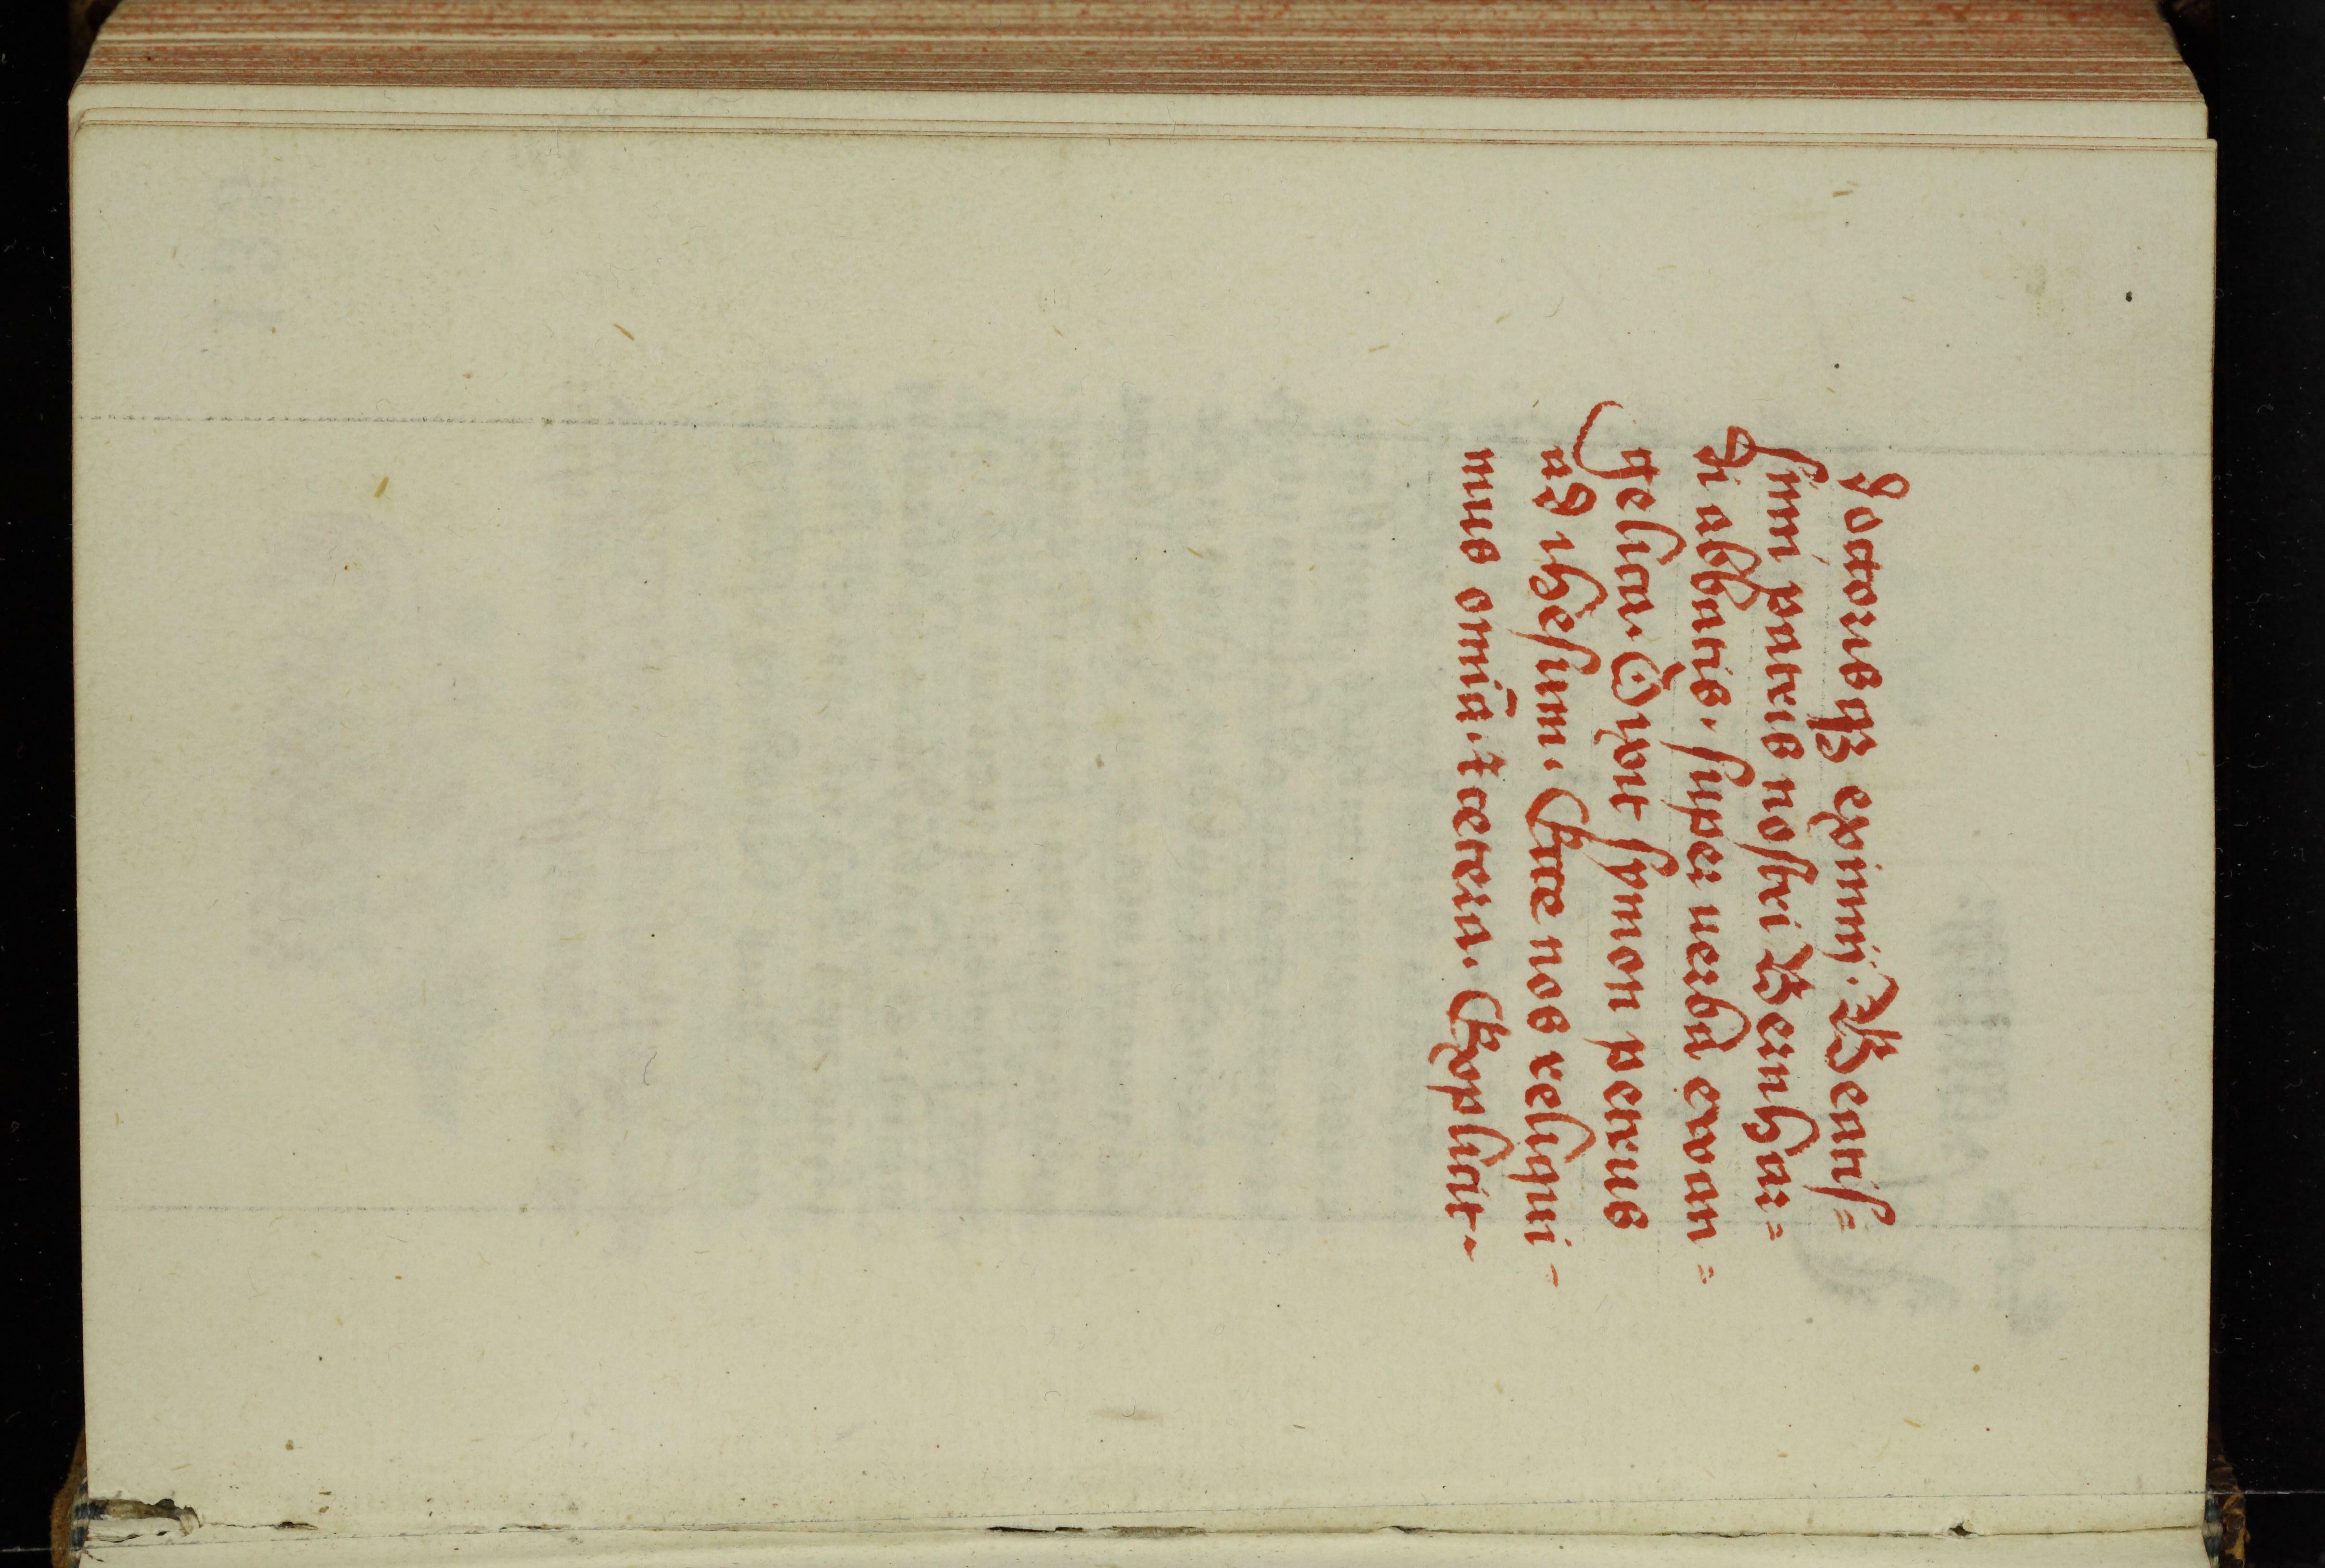 doctorisqꝫ eximij. Beatiſ=
ſimi patris noſtri Bernhar=
di abbatis. ſuper uerba ewan=
gelica. Dixit ſymon petrus
ad iheſum. Ecce nos reliqui-
mus omīa. et cetera. Explicit.